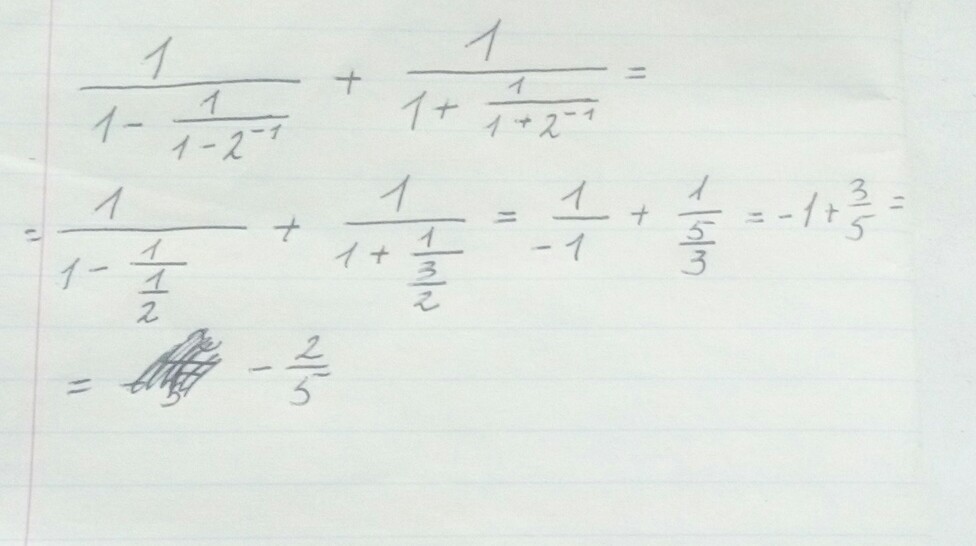 1/(1 - 1/(1 - 2^-1)) + 1/(1 + 1/(1 + 2^-1)) =
= 1/(1 - 1/(1/2)) + 1/(1 + 1/(3/2)) = 1/(-1) + 1/(5/3) = -1 + 3/5 =
= - 2/5